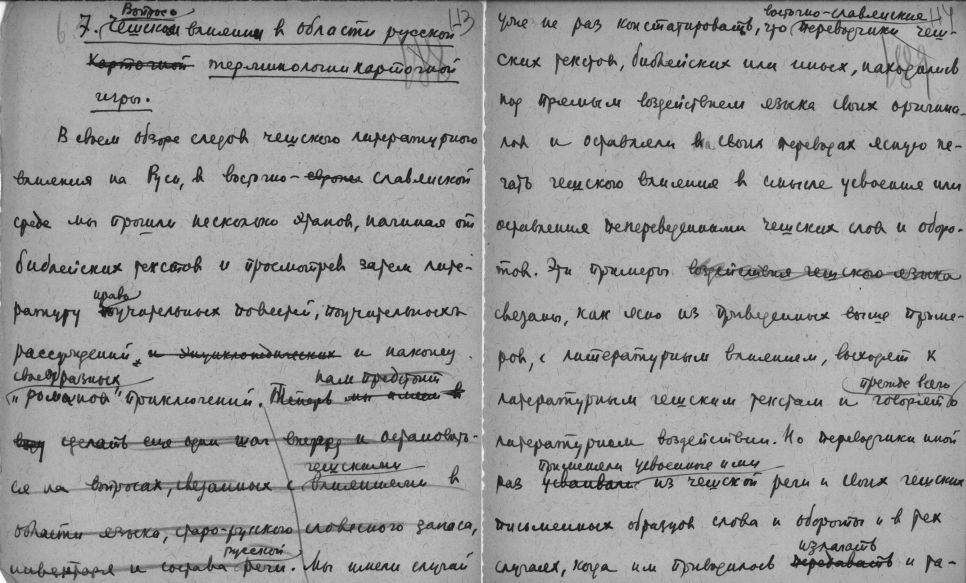 Вопрос о
7. Чешском влиянии в области русской 43
карточной терминологии карточной
игры.
В своем обзоре следов чешского литературного
влияния на Руси, в восточно- славянской
среде мы прошли несколько этапов, начиная от
библейских текстов и просмотрев затем лите-
нраво
ратуру поучительных повестей, поучительных
рассуждений и энциклопедических и наконец
своеобразных нам предстоит
"романов" приключений. Теперь мы имеем в
виду сделать еще один шаг вперед и остановить-
чешскими
ся на вопросах, связанных с влияниями в
области языка, старо-русского словесного запаса,
русской
инвентаря и состава речи. Мы имели случай
восточно-славянские 44
уже не раз констатировать, что переводчики чеш-
ских текстов, библейских или иных, находились
под прямым воздействием языка своих оригина-
лов и оставляли на своих переводах ясную пе-
чать чешского влияния в смысле усвоения или
оставления непереведенными чешских слов и оборо-
тов. Эти примеры воздействия чешского языка
связаны, как ясно из приведенных выше приме-
ров, с литературным влиянием, восходят к
прежде всего
литературным чешским текстам и говорят о
литературном воздействии. Но переводчики иной
применяли усвоенные ими
раз усваивали из чешской речи и своих чешских
письменных образцов слова и обороты и в тех
излагать
случаях, когда им приводилось передавать и ра-